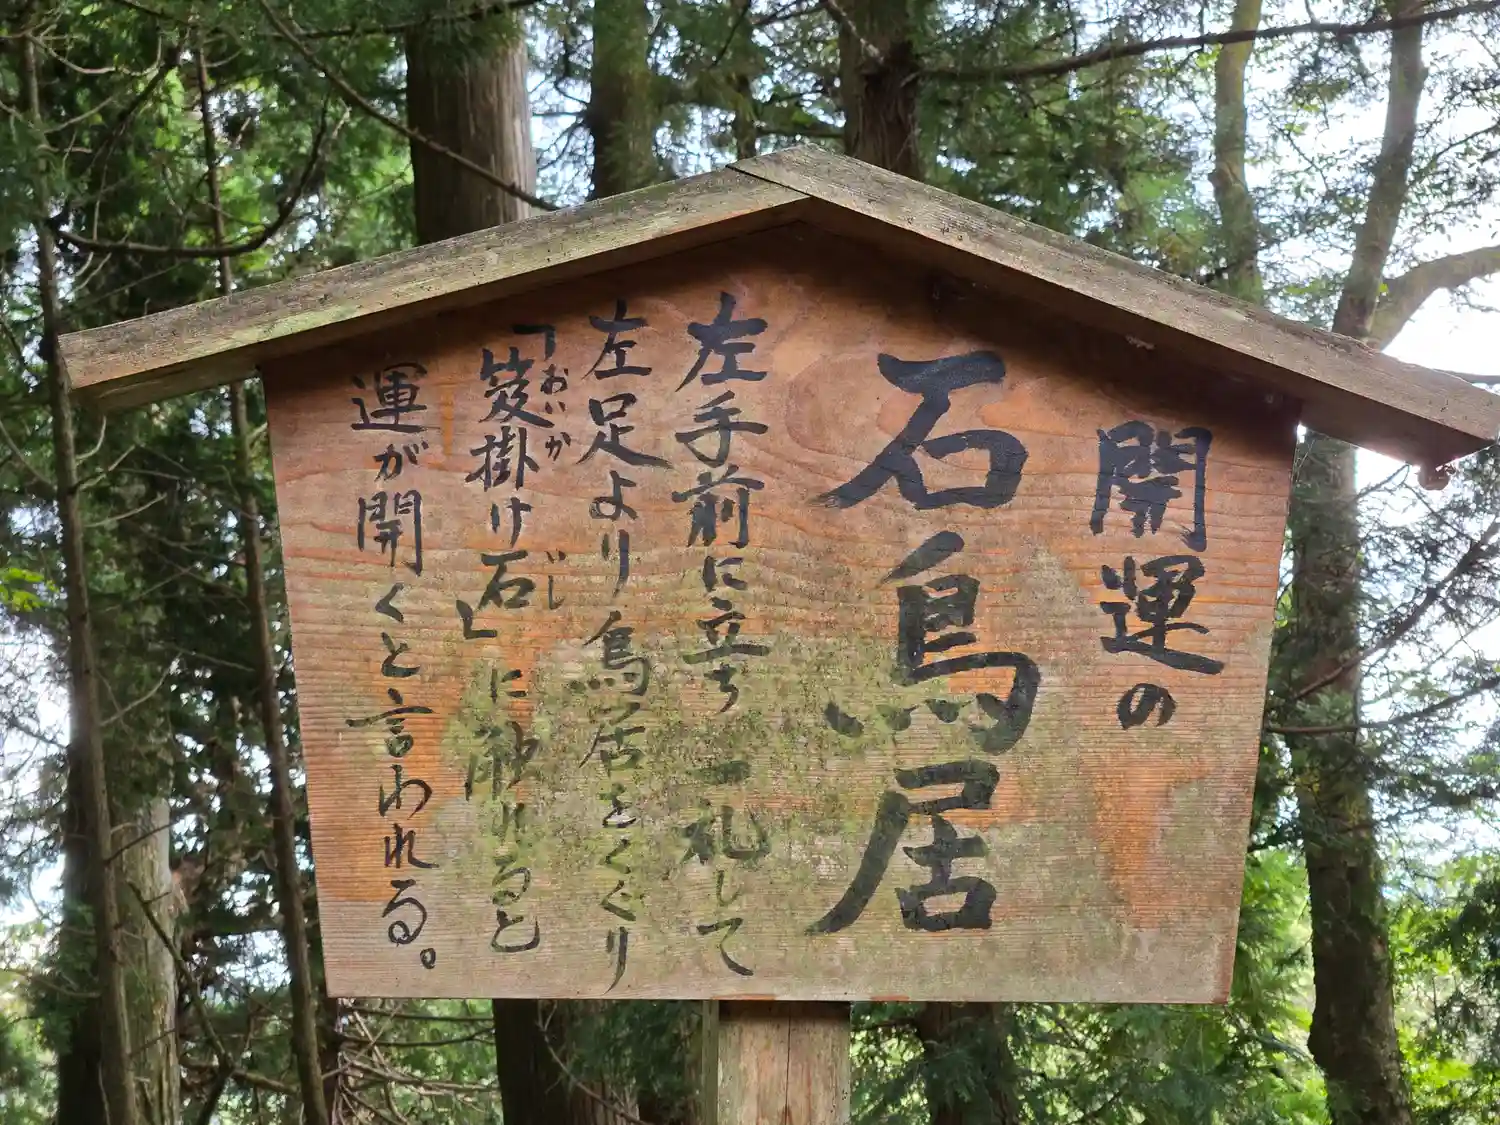 開運の
石鳥居
左手前に立ち一礼して
左足より鳥居をくぐり
「笈掛け石」に触れると
おいか いし
運が開くと言われる。